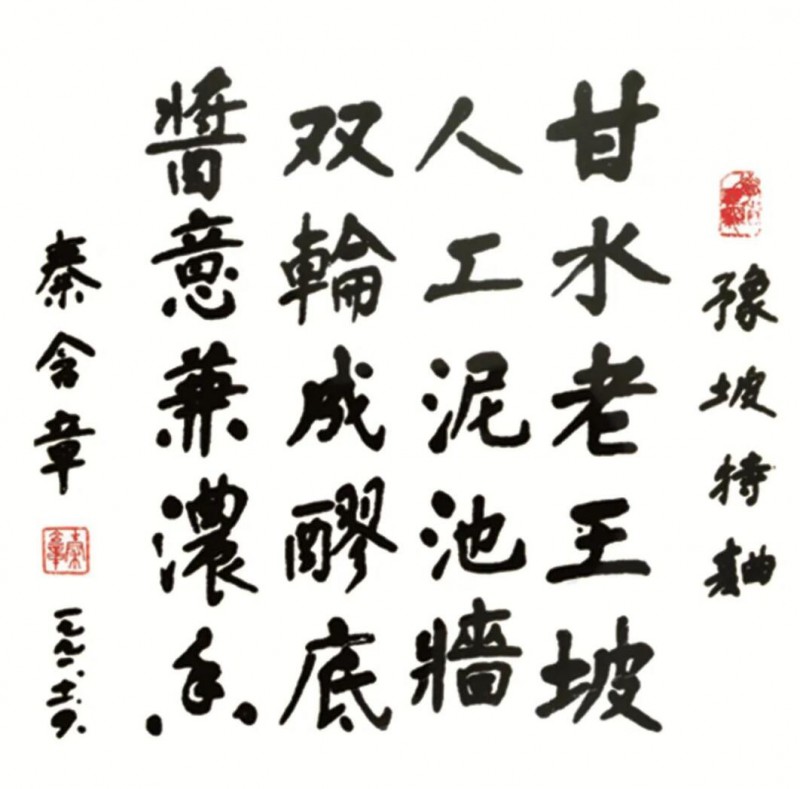 豫坡特麯
甘水老王坡
人工泥池牆
双輪成醪底
醬意兼濃香
秦含章
秦章
一九九一.十一.九.